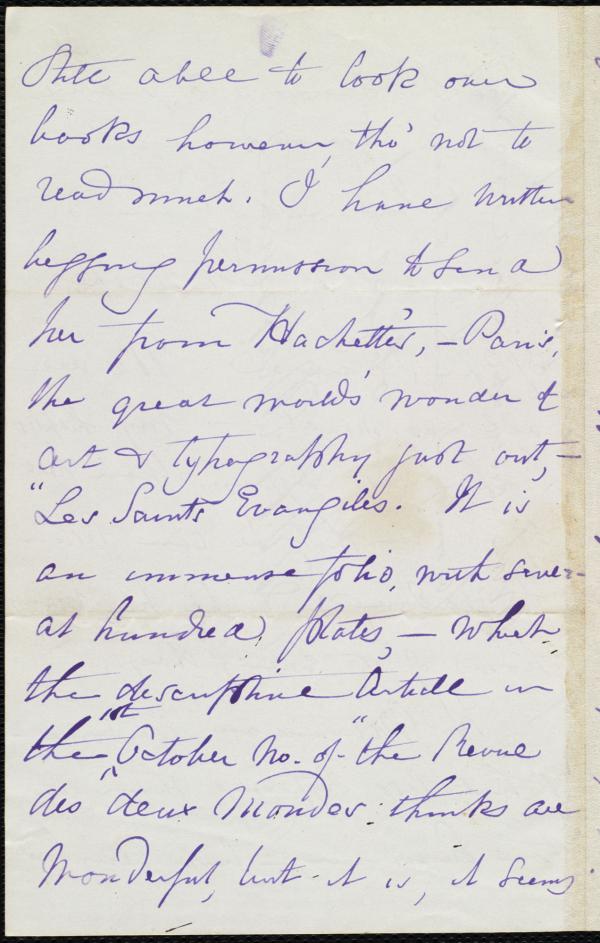 She able to look over
books however, tho' not to
read much. I have written
begging permission to send
her from Hachette's, – Paris,
the great world's wonder of
art & typography just out, –
"Les Saints Evangiles. It is
an immense folio, with sever-
al hundred plates, – which
the descriptive Article in
the 1st October No. of "the Revue
des deux Mondes" thinks are
Wonderful, but it is, it seems